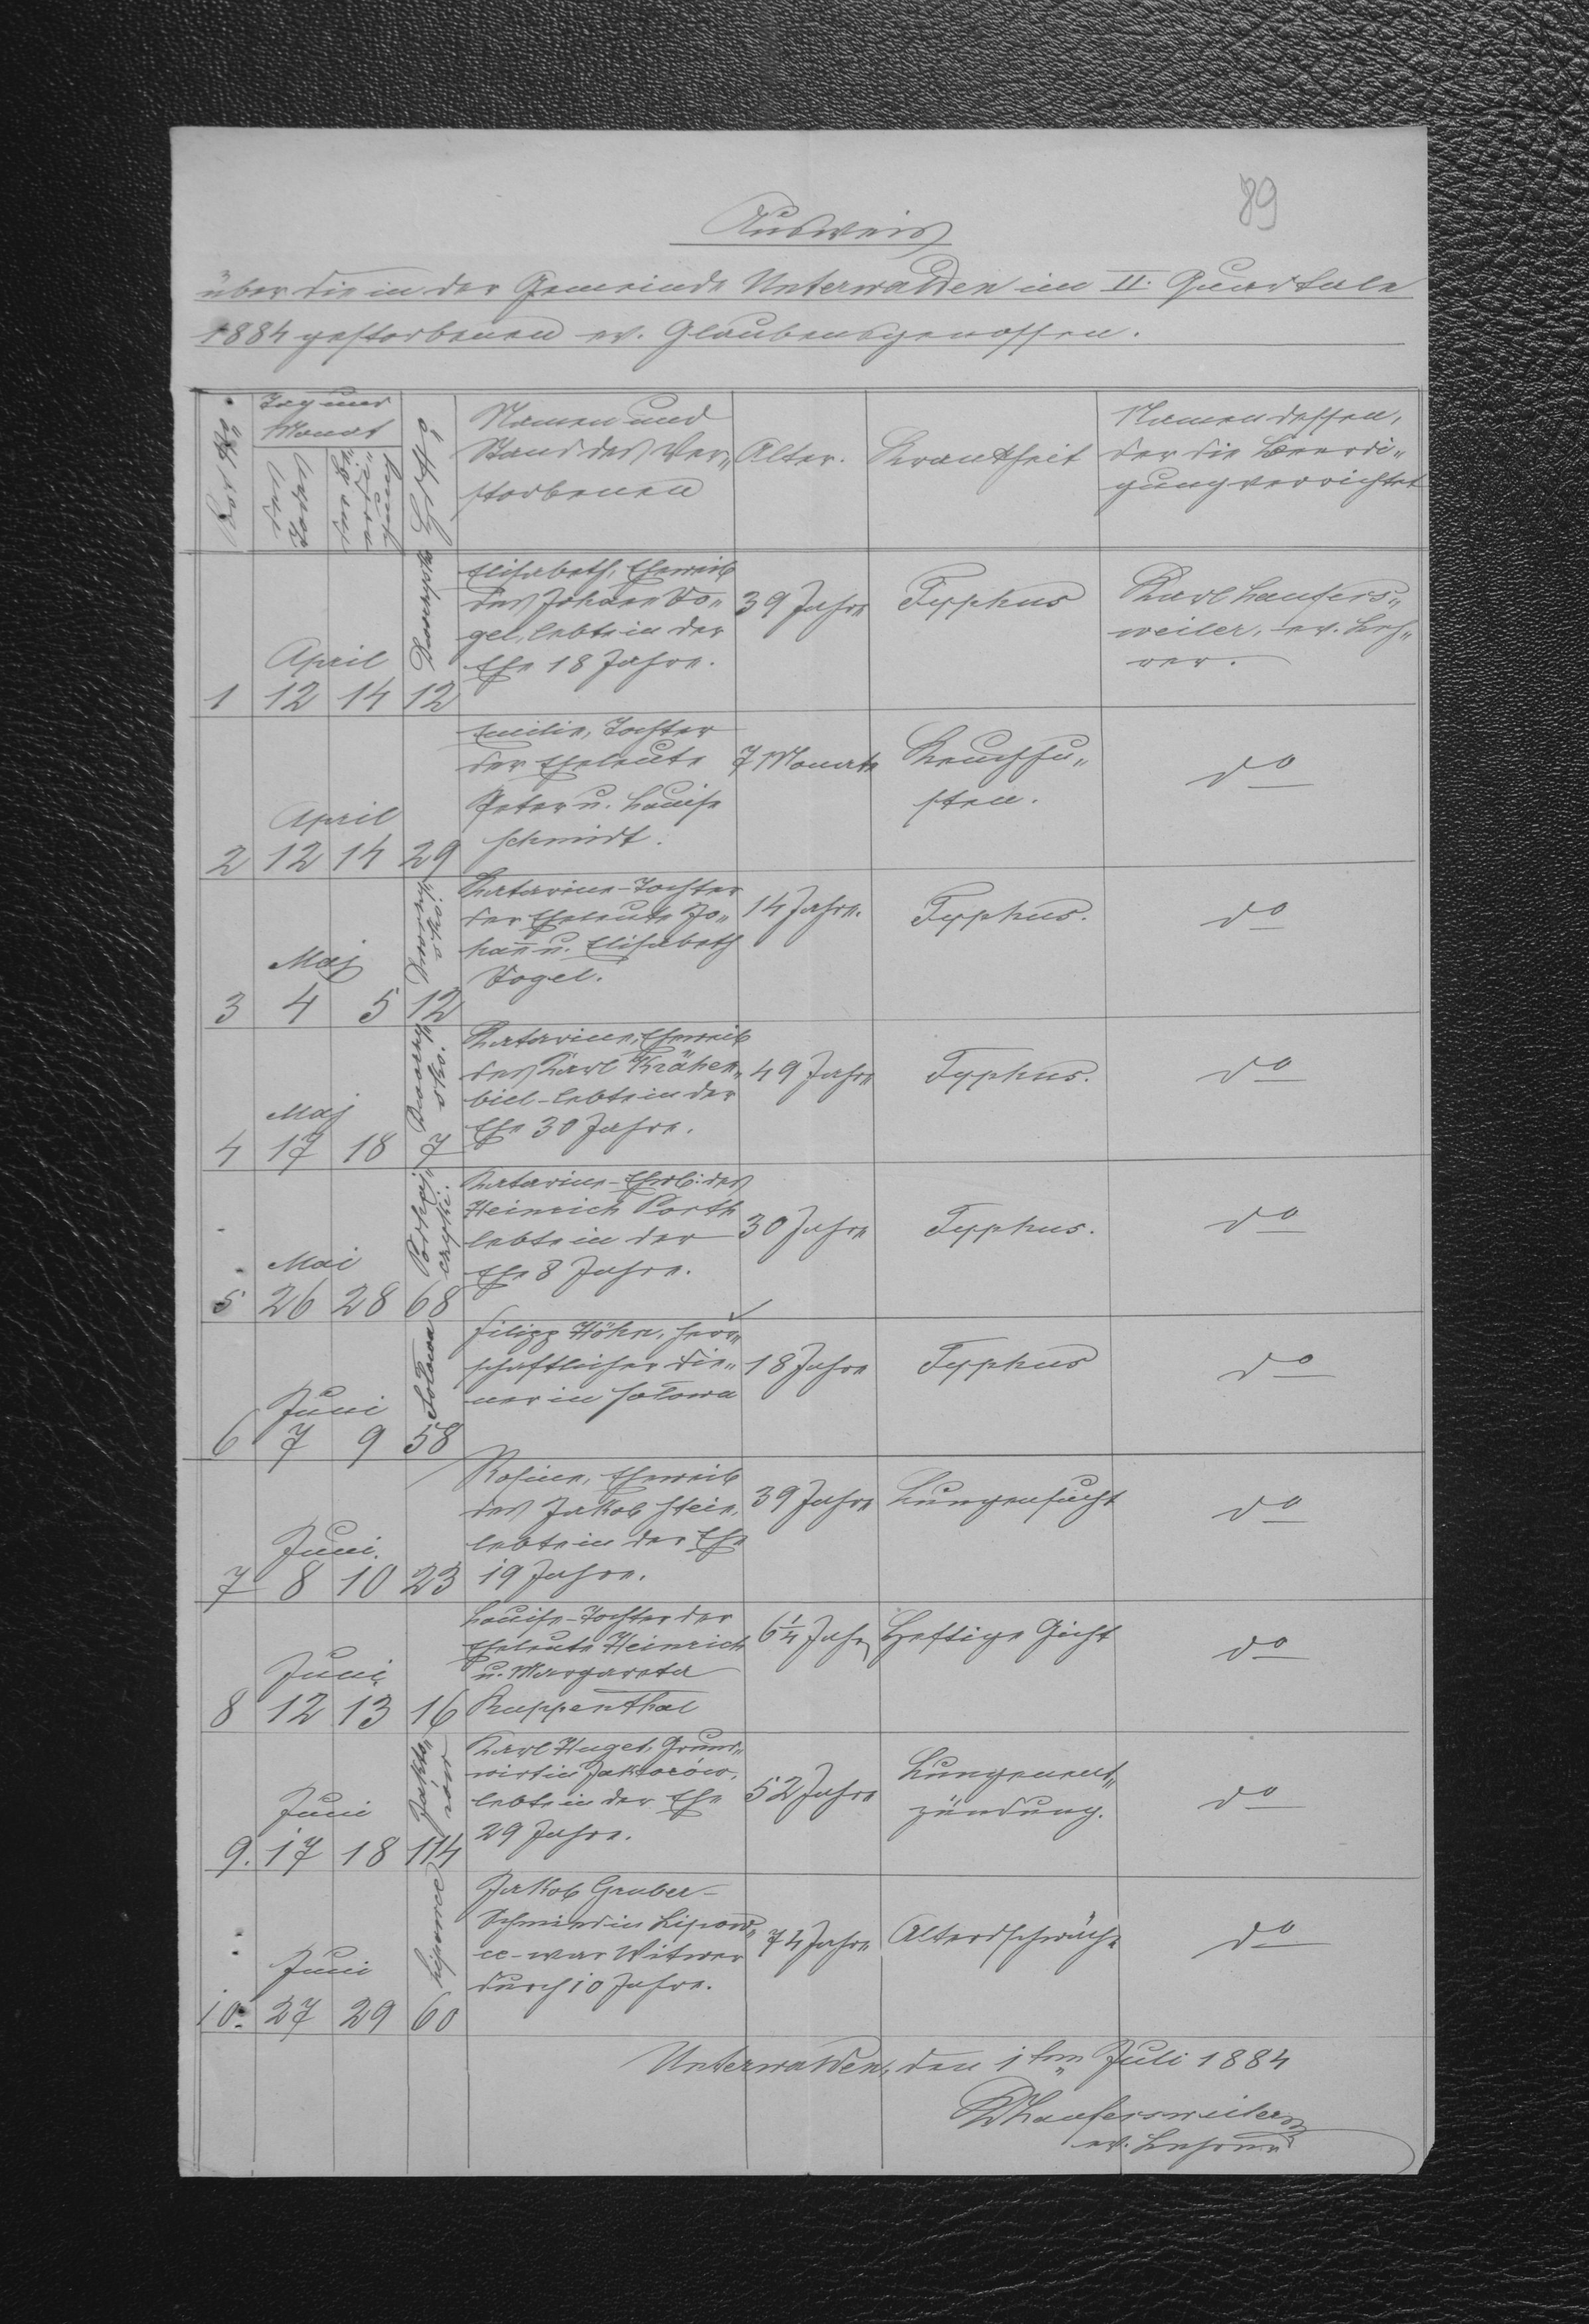 89
Ausweis
über die in der Gemeinde Unterwalden im II. Quartale
1884 gestorbenen ev. Glaubensgenossen.
Post No
Tag und
Monat
des
Todes
der Be„
erdi„
gung
Haus No
Namen und
Stand des Ver„
storbenen
Alter.
Krankheit
Namen dessen,
der die Beerdi„
gung verrichtet
1
April
12 14 12
Elisabeth, Eheweib
des Johann Vo„
gel, lebte in der
Ehe 18 Jahre.
39 Jahre
Typhus
Karl Laufers„
weiler, ev. Leh„
rer.
2
April
12 14 29
Emilie, Tochter
der Eheleute
Peter u. Louise
Schmidt.
7 Monate
Keuchhu„
sten.
do
3
Maj
4 5 12
Katarine - Tochter
der Eheleute Jo„
hann u. Elisabeth
Vogel.
14 Jahre.
Typhus.
do
4
Maj
17 18 7
Katarine, Eheweib
des Karl Krähen„
biel - lebte in der
Ehe 30 Jahre.
49 Jahre
Typhus.
do
5
Mai
26 28 68
Katarine - Ehwb: des
Heinrich Porth
lebte in der
Ehe 8 Jahre.
30 Jahre
Typhus.
do
6
Juni
7 9 58
Sołowa
Filipp Höhn, herr„
schaftlicher Die„
ner in Sołowa
18 Jahre
Typhus
do
7
Juni.
8 10 23
Rosine, Eheweib
des Jakob Stein,
lebte in der Ehe
19 Jahre.
39 Jahre
Lungensucht
do
8
Juni
12 13 16
Louise - Tochter der
Eheleute Heinrich
u. Margareta
Kuppenthal
6 1/4 Jahr
Heftige Gicht
do
9.
Juni
17 18 114
Jakto„
rów
Karl Huget, Grund„
wirt in Jaktorów,
lebte in der Ehe
29 Jahre.
52 Jahre
Lungenent„
zündung.
do
10.
Juni
27 29 60
Lipowce
Jakob Gruber -
Schmied in Lipow„
ce - war Witwer
durch 10 Jahre.
74 Jahre
Altersschwäche
do
Unterwalden, den 1ten Juli 1884
KLaufersweiler
ev. Lehrer